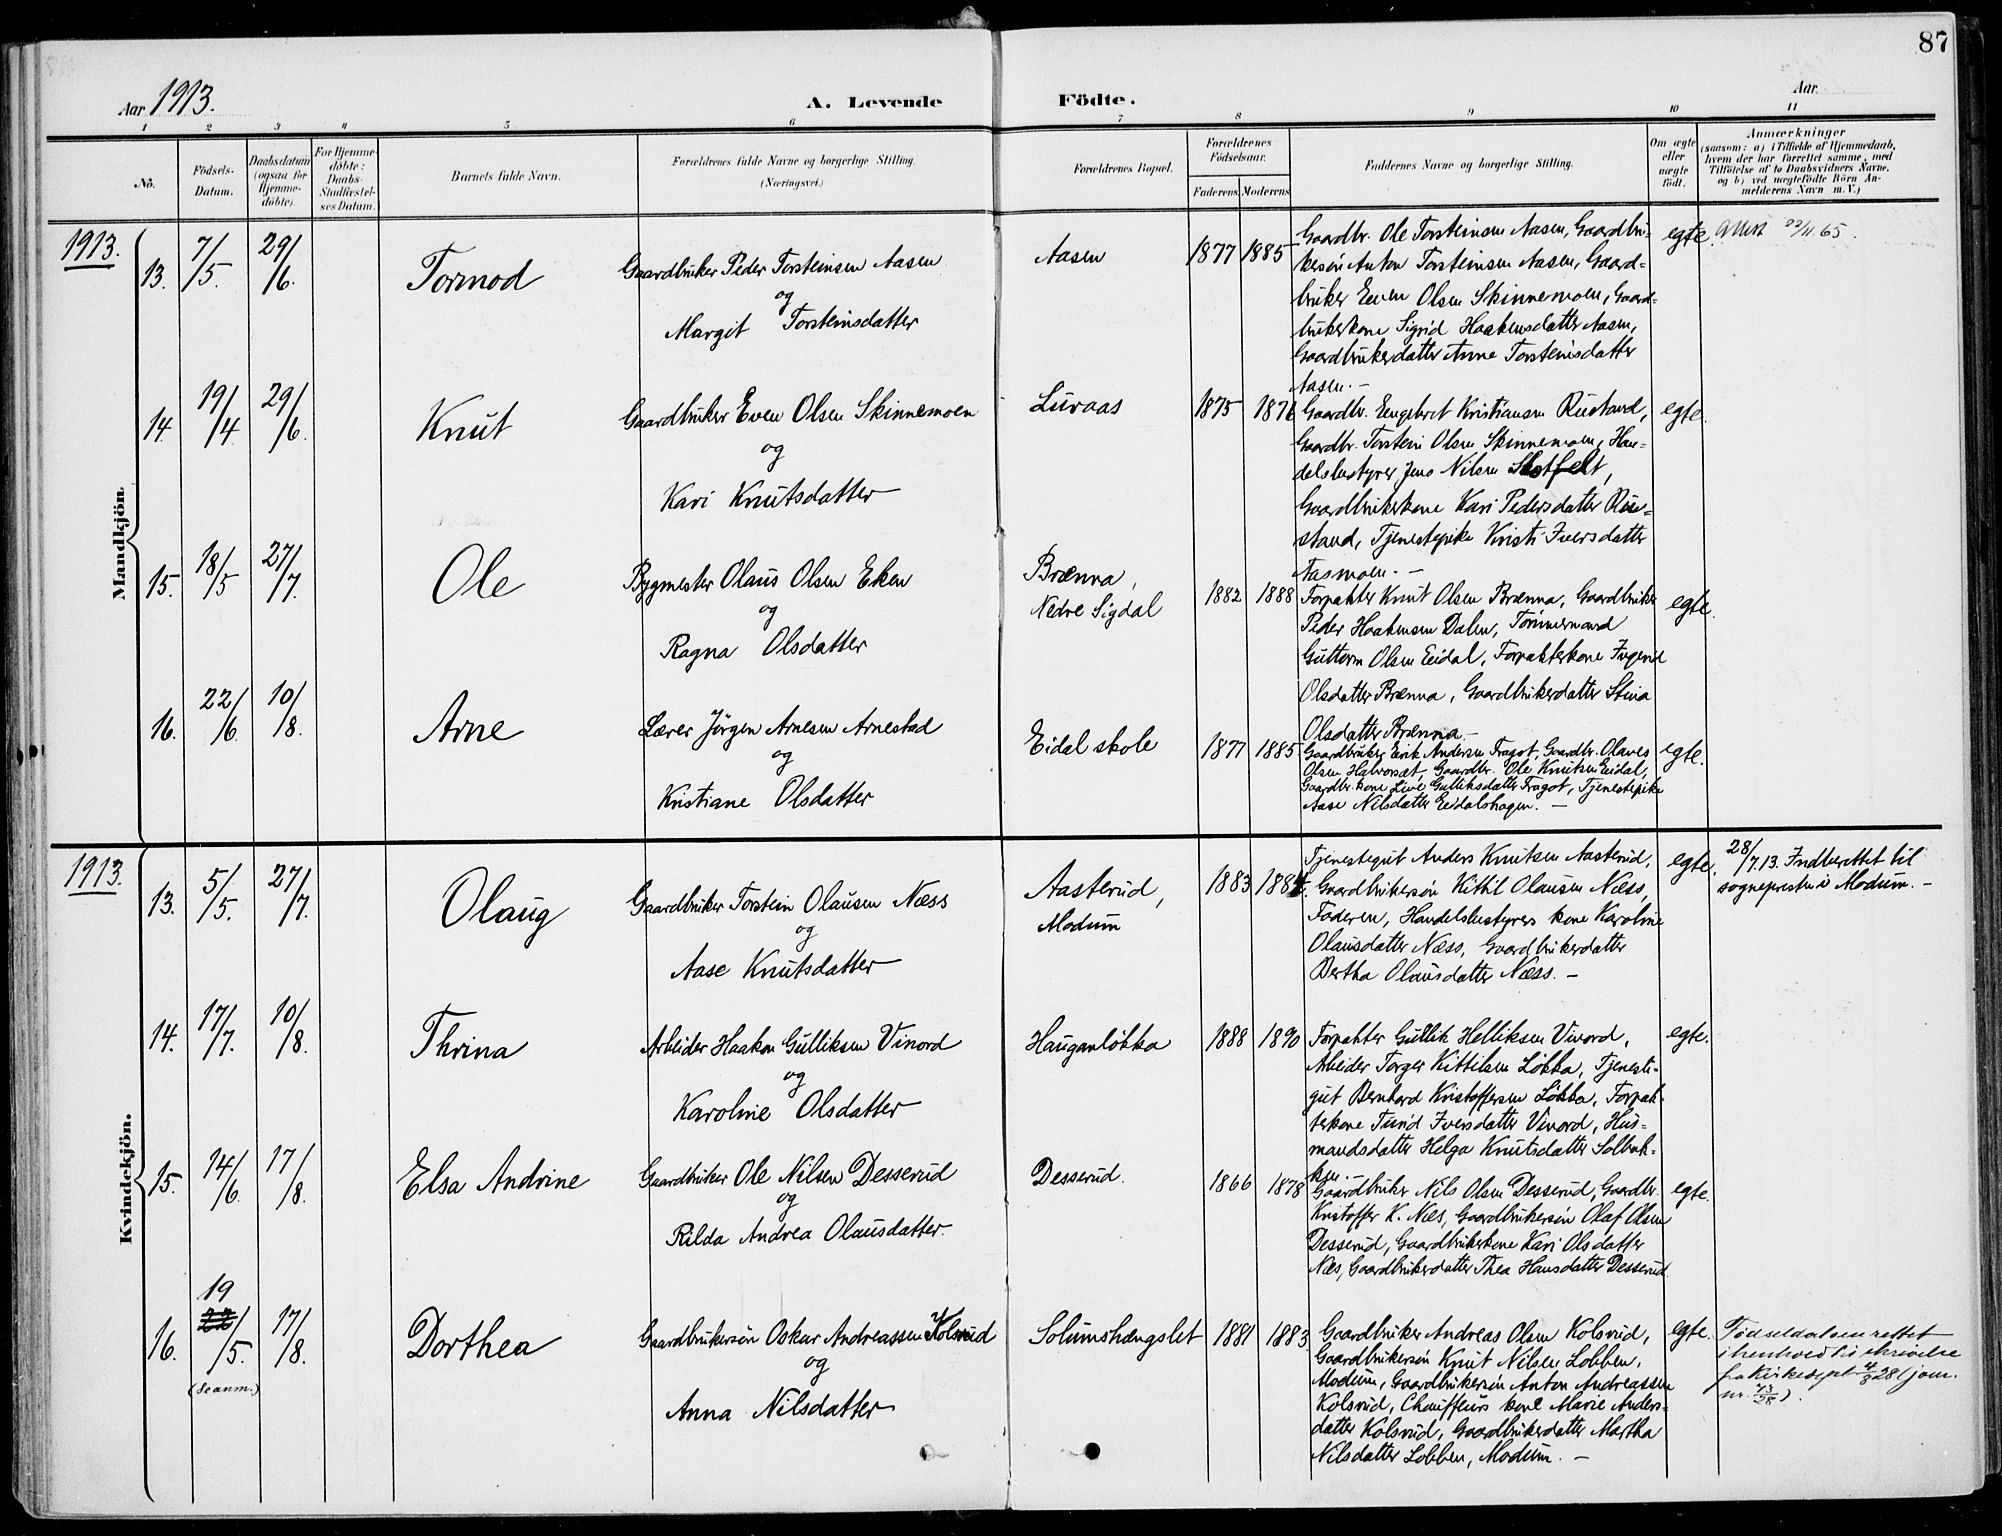 87
Aar 1913.
A. Levende Födte.
Aar
1 2 3 4 5 6 7 8 9 10 11
No.
Födsels-
Datum.
Daabsdatum
(ogsaa for
Hjemme-
döbte).
For Hjemme-
döbte:
Daabs-
Stadfæstel-
ses Datum.
Barnets fulde Navn.
Forældrenes fulde Navne og borgerlige Stilling.
(Næringsvei.)
Forældrenes Bopæl.
Forældrenes
Födselsaar.
Faderens. Moderens.
Faddernes Navne og borgerlige Stilling.
Om ægte
eller
uægte
födt.
Anmærkninger
(saasom: a) i Tilfælde af Hjemmedaab,
hvem der har forrettet samme, med
Tilföielse af to Daabsvidners Navne,
og b) ved uægtefödte Börn An-
melderens Navn m. V.)
Mandkjön.
1913.
13. 7/5. 29/6. Tormod
Gaardbruker Peder Torsteinsen Aasen
og
Margit Torsteinsdatter
Aasen 1877 1885
Gaardbr. Ole Torsteinsen Aasen, Gaardbru-
kersön Anton Torsteinsen Aasen, Gaard-
bruker Even Olsen Skinnemoen, Gaard-
brukerkone Sigrid Haakensdatter Aasen,
Gaardbrukerdatter Anne Torsteinsdatter
Aasen. -
egte. Attest 23/11.65.
14. 19/4 29/6. Knut
Gaardbruker Even Olsen Skinnemoen
og
Kari Knutsdatter
Luraas 1875 1876
Gaardbr. Engebret Kristiansen Rustand,
Gaardbr. Torstein Olsen Skinnemoen, Han-
delsbestyrer Jens Nilsen Slotfelt,
Gaardbrukerkone Kari Pedersdatter Ru-
stand, Tjenestepike Kristi Iversdatter
Aasmoen. -
egte.
15. 18/5 27/7. Ole
Bygmester Olaus Olsen Eken
og
Ragna Olsdatter
Brænna,
Nedre Sigdal
1882 1888
Forpakter Knut Olsen Brænna, Gaardbruker
Peder Haakensen Dalen, Tømmermand
Guttorm Olsen Eidal, Forpakterkone Ingend
Olsdatter Brænna, Gaardbrukerdatter Stina
Olsdatter Brænna.-
egte.
16. 22/6. 10/8. Arne
Lærer Jörgen Arnesen Arnestad
og
Kristiane Olsdatter
Eidal skole 1877 1885
Gaardbruker Erik Andersen Fragot, Gaardbr. Olaves
Olsen Halvorsæt, Gaardbr. Ole Knutsen Eidal,
Gaardbr.kone Live Gulliksdatter Fragot, Tjenestepike
Aase Nilsdatter Eidalshagen. -
egte.
Kvindekjön.
1913.
13. 5/5. 27/7. Olaug
Gaardbruker Torstein Olausen Næss
og
Aase Knutsdatter
Aasterud,
Modum
1883 1884.
Tjenestegut Anders Knutsen Aasterud,
Gaardbrukersön Kittil Olausen Næss,
Faderen, Handelsbestyrers kone Karoline
Olausdatter Næss, Gaardbrukerdatter
Bertha Olausdatter Næss. -
egte.
28/7.13. Indberettet til
sognepresten i Modum. -
14. 17/7. 10/8. Thrina
Arbeider Haakon Gulliksen Vinord
og
Karoline Olsdatter
Hauganløkka 1888 1890
Forpakter Gullik Helliksen Vinord,
Arbeider Torger Kittilsen Løkka, Tjeneste-
gut Bernhard Kristoffersen Løkka, Forpak-
terkone Turid Iversdatter Vinord, Hus-
mandsdatter Helga Knutsdatter Solbak-
ken. -
egte.
15. 14/6. 17/8. Elsa Andrine
Gaardbruker Ole Nilsen Desserud
og
Rilda Andrea Olausdatter.
Desserud. 1866 1878
Gaardbruker Nils Olsen Desserud, Gaardbr.
Kristoffer K. Næs, Gaardbrukersön Olaf Olsen
Desserud, Gaardbrukerkone Kari Olsdatter
Næs, Gaardbrukerdatter Thea Hansdatter Desserud.
egte.
19
16. 22/5. 17/8. Dorthea
(Se anm.)
Gaardbrukersön Oskar Andreassen Kolsrud
og
Anna Nilsdatter
Solumshængslet 1881 1883
Gaardbruker Andreas Olsen Kolsrud,
Gaardbrukersön Knut Nilsen Lobben,
Modum, Gaardbrukersön Anton Andreassen
Kolsrud, Chauffeurs kone Marie Anders-
datter Kolsrud, Gaardbrukerdatter Martha
Nilsdatter Lobben, Modum. -
egte.
Födselsdatoen rettet
i henhold til skrivelse
fra Kirkedept. 4/8 28 (jour.
nr. 73/28).